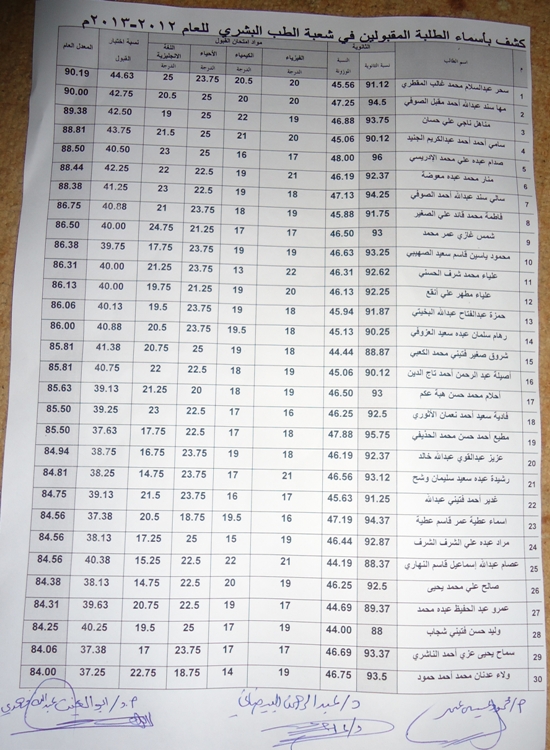 كشف بأسماء الطلبة المقبولين في شعبة الطب البشري للعام ٢٠١٢-٢٠١٣م
م اسم الطالب الثانوية مواد امتحان القبول نسبة اختبار القبول المعدل العام
نسبة الثانوية النسبة الموزونة الفيزياء الكيمياء الأحياء اللغة الانجليزية
الدرجة الدرجة الدرجة الدرجة
1 سحر عبدالسلام محمد غالب المقطري 91.12 45.56 20 20.5 23.75 25 44.63 90.19
2 مها سند عبدالله أحمد مقبل الصوفي 94.5 47.25 20 20 25 20.5 42.75 90.00
3 مناهل ناجي علي حسان 93.75 46.88 19 22 25 19 42.50 89.38
4 سامي أحمد أحمد عبدالكريم الجنيد 90.12 45.06 20 21 25 21.5 43.75 88.81
5 صدام عبده علي محمد الإدريسي 96 48.00 17 16 25 23 40.50 88.50
6 منار محمد عبده معوضة 92.37 46.19 21 19 22.5 22 42.25 88.44
7 سالي سند عبدالله أحمد الصوفي 94.25 47.13 18 19 22.5 23 41.25 88.38
8 فاطمة محمد قائد علي الصغير 91.75 45.88 19 18 23.75 21 40.88 86.75
9 شمس غازي عمر محمد 93 46.50 17 17 21.25 24.75 40.00 86.50
10 محمود ياسين قاسم سعيد الصهيبي 93.25 46.63 19 19 23.75 17.75 39.75 86.38
11 علياء محمد شرف الحسني 92.62 46.31 22 13 23.75 21.25 40.00 86.31
12 علياء مطهر علي أنقع 92.25 46.13 20 19 19.75 21.25 40.00 86.13
13 حمزة عبدالفتاح عبدالله البخيتي 91.87 45.94 18 19 23.75 19.5 40.13 86.06
14 رهام سلمان عبده سعيد العزوقي 90.25 45.13 18 19.5 23.75 20.5 40.88 86.00
15 شروق صغير فتيني محمد الكعبي 88.87 44.44 18 19 25 20.75 41.38 85.81
16 أصيلة عبد الرحمن أحمد تاج الدين 90.12 45.06 19 18 22.5 22 40.75 85.81
17 أحلام محمد حسن هبة عكم 93 46.50 19 18 20 21.25 39.13 85.63
18 فادية سعيد أحمد نعمان الأثوري 92.5 46.25 16 17 22.5 23 39.25 85.50
19 مطيع أحمد حسن محمد الحذيفي 95.75 47.88 18 17 22.5 17.75 37.63 85.50
20 عزيز عبدالقوي عبدالله خالد 92.37 46.19 18 19 23.75 16.75 38.75 84.94
21 رشيدة عبده سعيد سليمان وشح 93.12 46.56 21 17 23.75 14.75 38.25 84.81
22 غدير أحمد فتيني عبدالله 91.25 45.63 17 16 23.75 21.5 39.13 84.75
23 اسماء عطية عمر قاسم عطية 94.37 47.19 16 19.5 18.75 20.5 37.38 84.56
24 مراد عبده علي الشرف الشرف 92.87 46.44 19 15 25 17.25 38.13 84.56
25 عصام عبدالله إسماعيل قاسم النهاري 88.37 44.19 21 22 22.5 15.25 40.38 84.56
26 صالح علي محمد يحيى 92.5 46.25 19 20 22.5 14.75 38.13 84.38
27 عمرو عبد الحفيظ عبده محمد 89.37 44.69 17 19 22.5 20.75 39.63 84.31
28 وليد حسن فتيني شجاب 88 44.00 19 17 25 19.5 40.25 84.25
29 سماح يحيى عزي أحمد الناشري 93.37 46.69 17 17 23.75 17 37.38 84.06
30 ولاء عدنان محمد أحمد حمود 93.5 46.75 19 14 18.75 22.75 37.25 84.00
د/عبدالرحمن